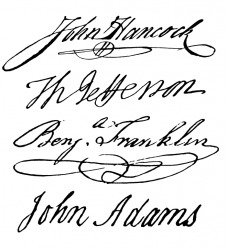 John Hancock
Th Jefferson
Benj. Franklin
John Adams